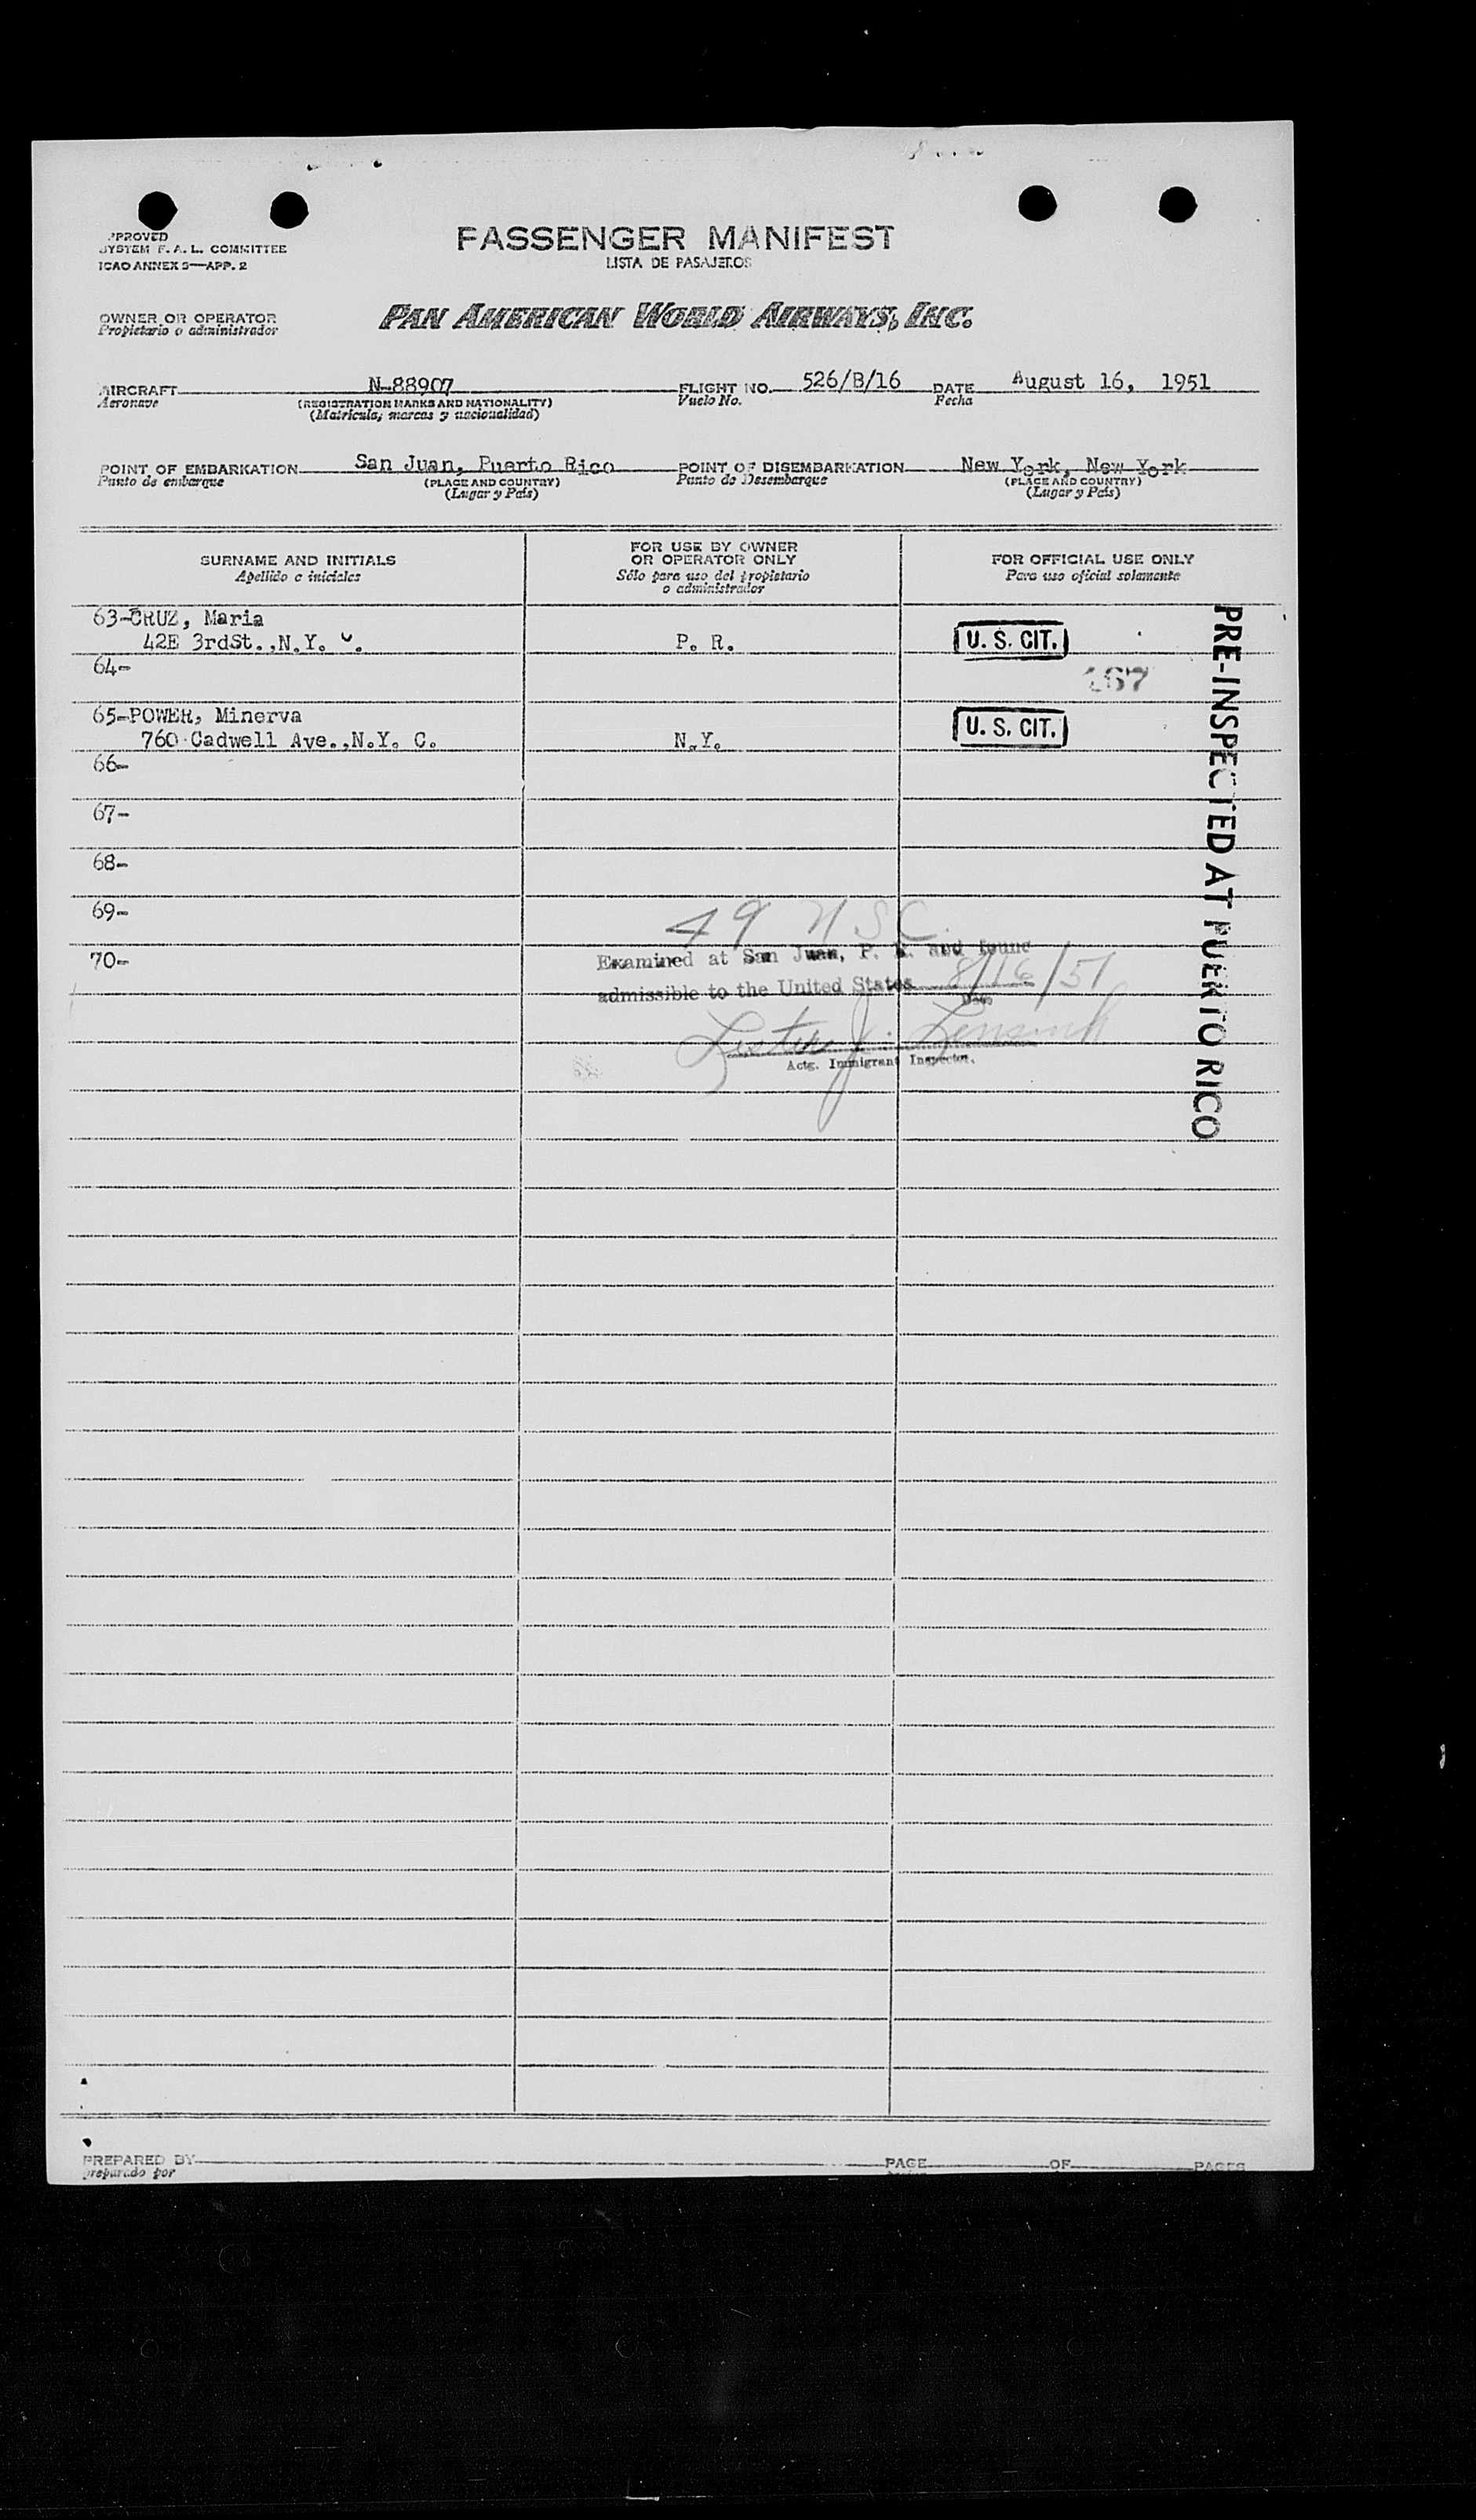 APPROVED
SYSTEM F. A. L. COMMITTEE
ICAO ANNEX 9—APP. 2
PASSENGER MANIFEST
LISTA DE PASAJEROS
OWNER OR OPERATOR
Propietario o administrador
PAN AMERICAN WORLD AIRWAYS, INC.
AIRCRAFT N-88907 FLIGHT NO. 526/B/16 DATE August 16, 1951
Aeronave (REGISTRATION MARKS AND NATIONALITY) Vuelo No. Fecha
(Matrícula, marcas y nacionalidad)
POINT OF EMBARKATION San Juan, Puerto Rico POINT OF DISEMBARKATION New York, New York
Punto de embarque (PLACE AND COUNTRY) Punto de Desembarque (PLACE AND COUNTRY)
(Lugar y País) (Lugar y País)
SURNAME AND INITIALS
Apellido e iniciales
FOR USE BY OWNER
OR OPERATOR ONLY
Sólo para uso del propietario
o administrador
FOR OFFICIAL USE ONLY
Para uso oficial solamente
63-CRUZ, Maria
42E 3rdSt.,N.Y. C. P. R. U. S. CIT.
64-
167
65-POWER, Minerva
760 Cadwell Ave.,N.Y. C. N.Y. U. S. CIT.
66-
67-
68-
69-
49 USC
70-
Examined at San Juan, P. R. and found
admissible to the United States 8/16/51
Date
Lester J.
Actg. Immigrant Inspector.
PRE-INSPECTED AT PUERTO RICO
PREPARED BY PAGE OF PAGES
preparado por